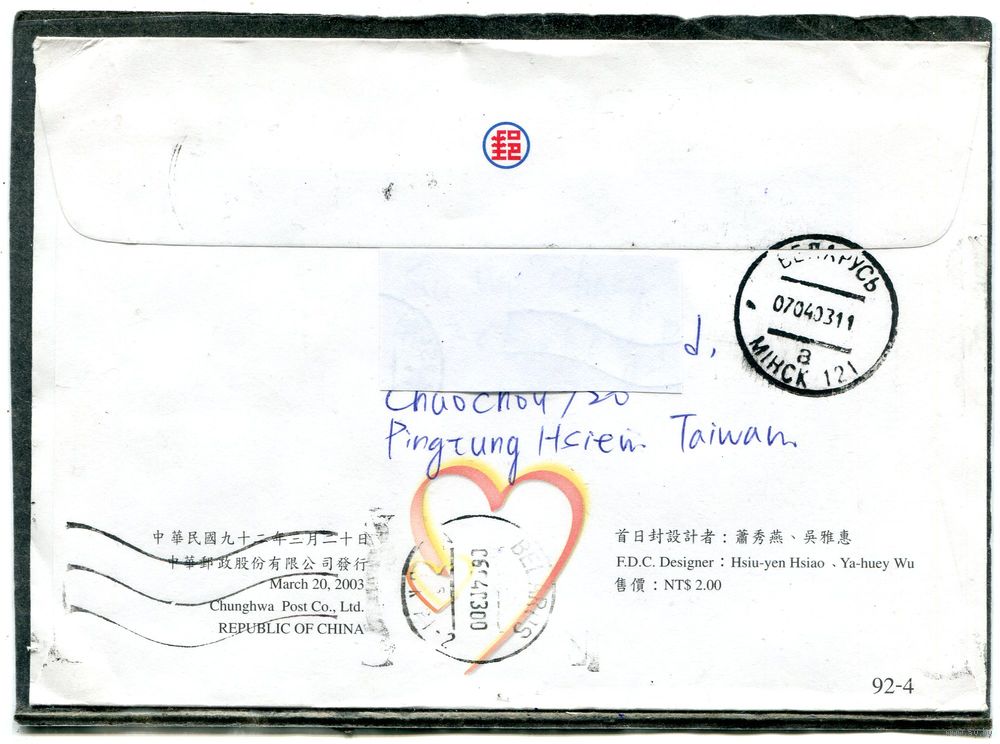 郵
БЕЛАРУСЬ
07040311
а
МІНСК 121
d,
Chaochou 920
Pingtung Hsien Taiwan
中華民國九十二年三月二十日
中華郵政股份有限公司發行
March 20, 2003
Chunghwa Post Co., Ltd.
REPUBLIC OF CHINA
BELARUS
06040300
首日封設計者：蕭秀燕、吳雅惠
F.D.C. Designer：Hsiu-yen Hsiao、Ya-huey Wu
售價：NT$ 2.00
92-4